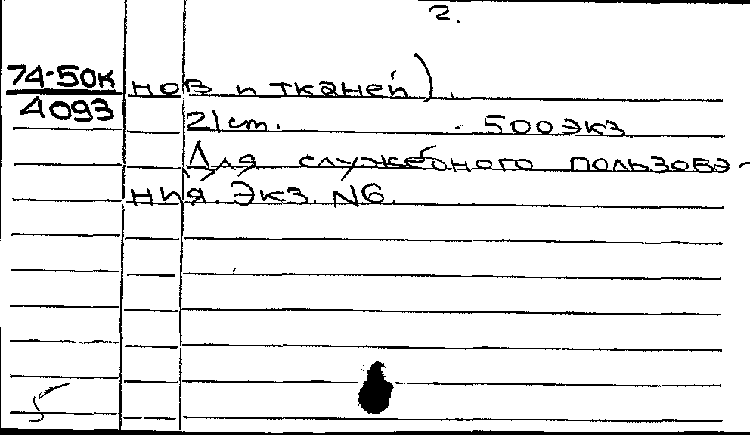 2.
74-50к нов и тканей).
4093 21 ст. - 500 экз
Для служебного пользова-
ния. Экз. N6.
5